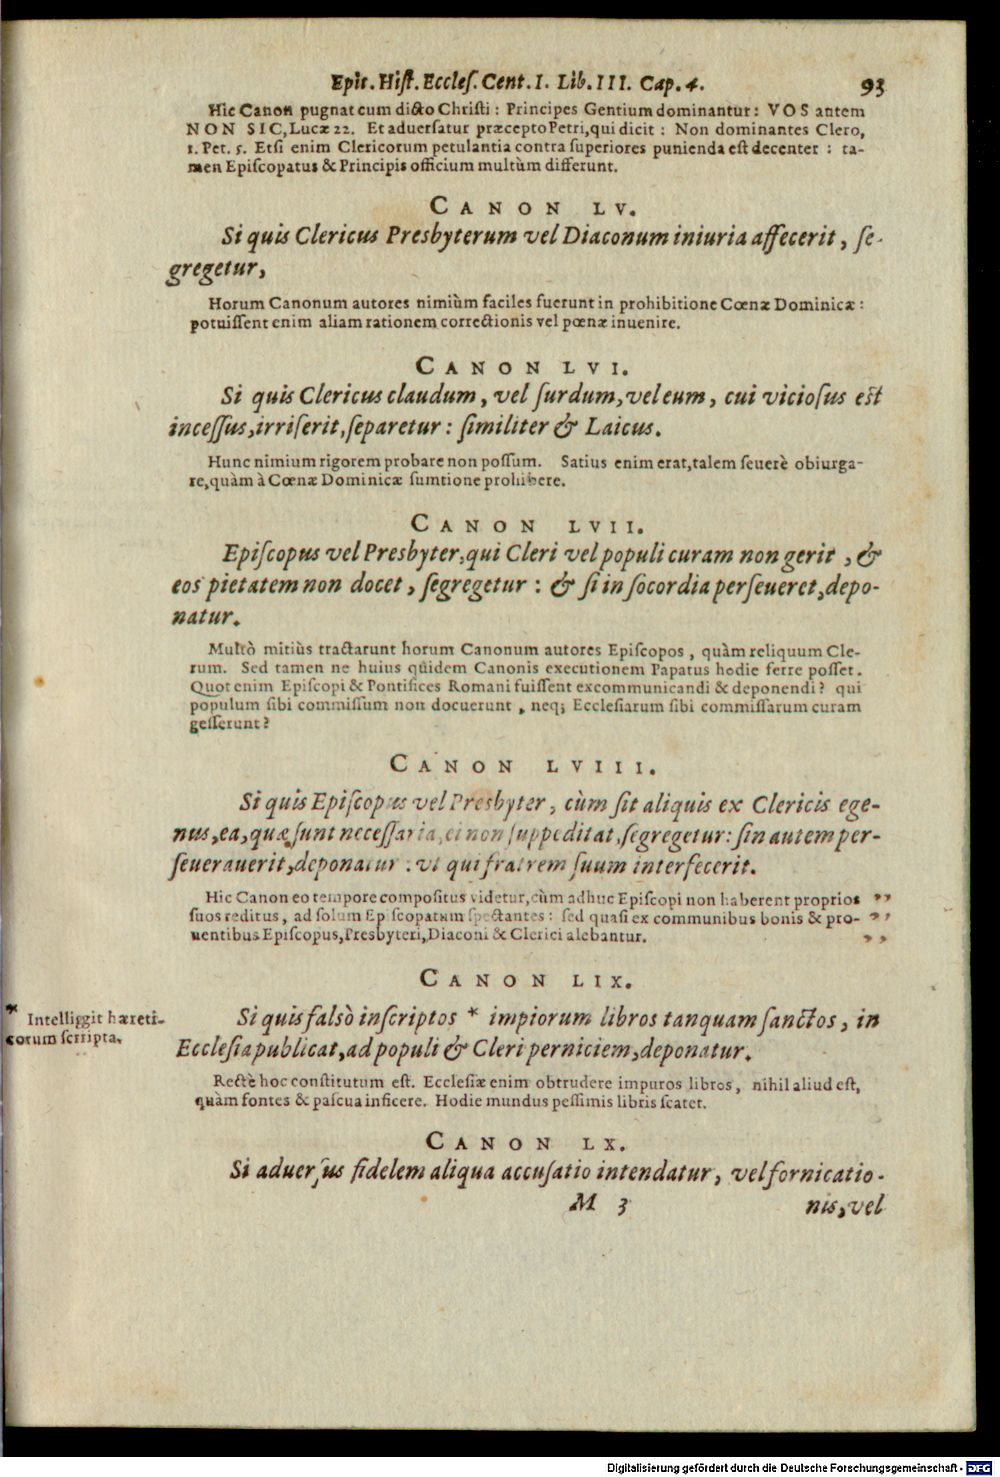 Epit. Hiſt. Eccleſ. Cent. I. Lib. III. Cap. 4. 93
Hic Canon pugnat cum dicto Chriſti: Principes Gentium dominantur: VOS autem
NON SIC, Lucæ 22. Et aduerſatur præcepto Petri, qui dicit: Non dominantes Clero,
1. Pet. 5. Etſi enim Clericorum petulantia contra ſuperiores punienda eſt decenter: ta-
men Epiſcopatus & Principis officium multùm differunt.
CANON LV.
Si quis Clericus Presbyterum vel Diaconum iniuria affecerit, ſe-
gregetur,
Horum Canonum autores nimiùm faciles fuerunt in prohibitione Cœnæ Dominicæ:
potuiſſent enim aliam rationem correctionis vel pœnæ inuenire.
CANON LVI.
Si quis Clericus claudum, vel ſurdum, vel eum, cui vicioſus eſt
inceſſus, irriſerit, ſeparetur: ſimiliter & Laicus.
Hunc nimium rigorem probare non poſſum. Satius enim erat, talem ſeuerè obiurga-
re, quàm à Cœnæ Dominicæ ſumtione prohibere.
CANON LVII.
Epiſcopus vel Presbyter, qui Cleri vel populi curam non gerit, &
eos pietatem non docet, ſegregetur: & ſi in ſocordia perſeueret, depo-
natur.
Multò mitiùs tractarunt horum Canonum autores Epiſcopos, quàm reliquum Cle-
rum. Sed tamen ne huius quidem Canonis executionem Papatus hodie ferre poſſet.
Quot enim Epiſcopi & Pontifices Romani fuiſſent excommunicandi & deponendi? qui
populum ſibi commiſſum non docuerunt, neq; Eccleſiarum ſibi commiſſarum curam
geſſerunt?
CANON LVIII.
Si quis Epiſcopus vel Presbyter, cùm ſit aliquis ex Clericis ege-
nus, ea, quæ ſunt neceſſaria, ei non ſuppeditat, ſegregetur: ſin autem per-
ſeuerauerit, deponatur: vt qui fratrem ſuum interfecerit.
Hic Canon eo tempore compoſitus videtur, cùm adhuc Epiſcopi non haberent proprios ,,
ſuos reditus, ad ſolum Epiſcopatum ſpectantes: ſed quaſi ex communibus bonis & pro- ,,
uentibus Epiſcopus, Presbyteri, Diaconi & Clerici alebantur. ,,
CANON LIX.
* Intelligit hæreti-
corum ſcripta.
Si quis falsò inſcriptos * impiorum libros tanquam ſanctos, in
Eccleſia publicat, ad populi & Cleri perniciem, deponatur.
Rectè hoc conſtitutum eſt. Eccleſiæ enim obtrudere impuros libros, nihil aliud eſt,
quàm fontes & paſcua inficere. Hodie mundus peſſimis libris ſcatet.
CANON LX.
Si aduerſus fidelem aliqua accuſatio intendatur, vel fornicatio-
M 3 nis, vel
Digitalisierung gefördert durch die Deutsche Forschungsgemeinschaft - DFG